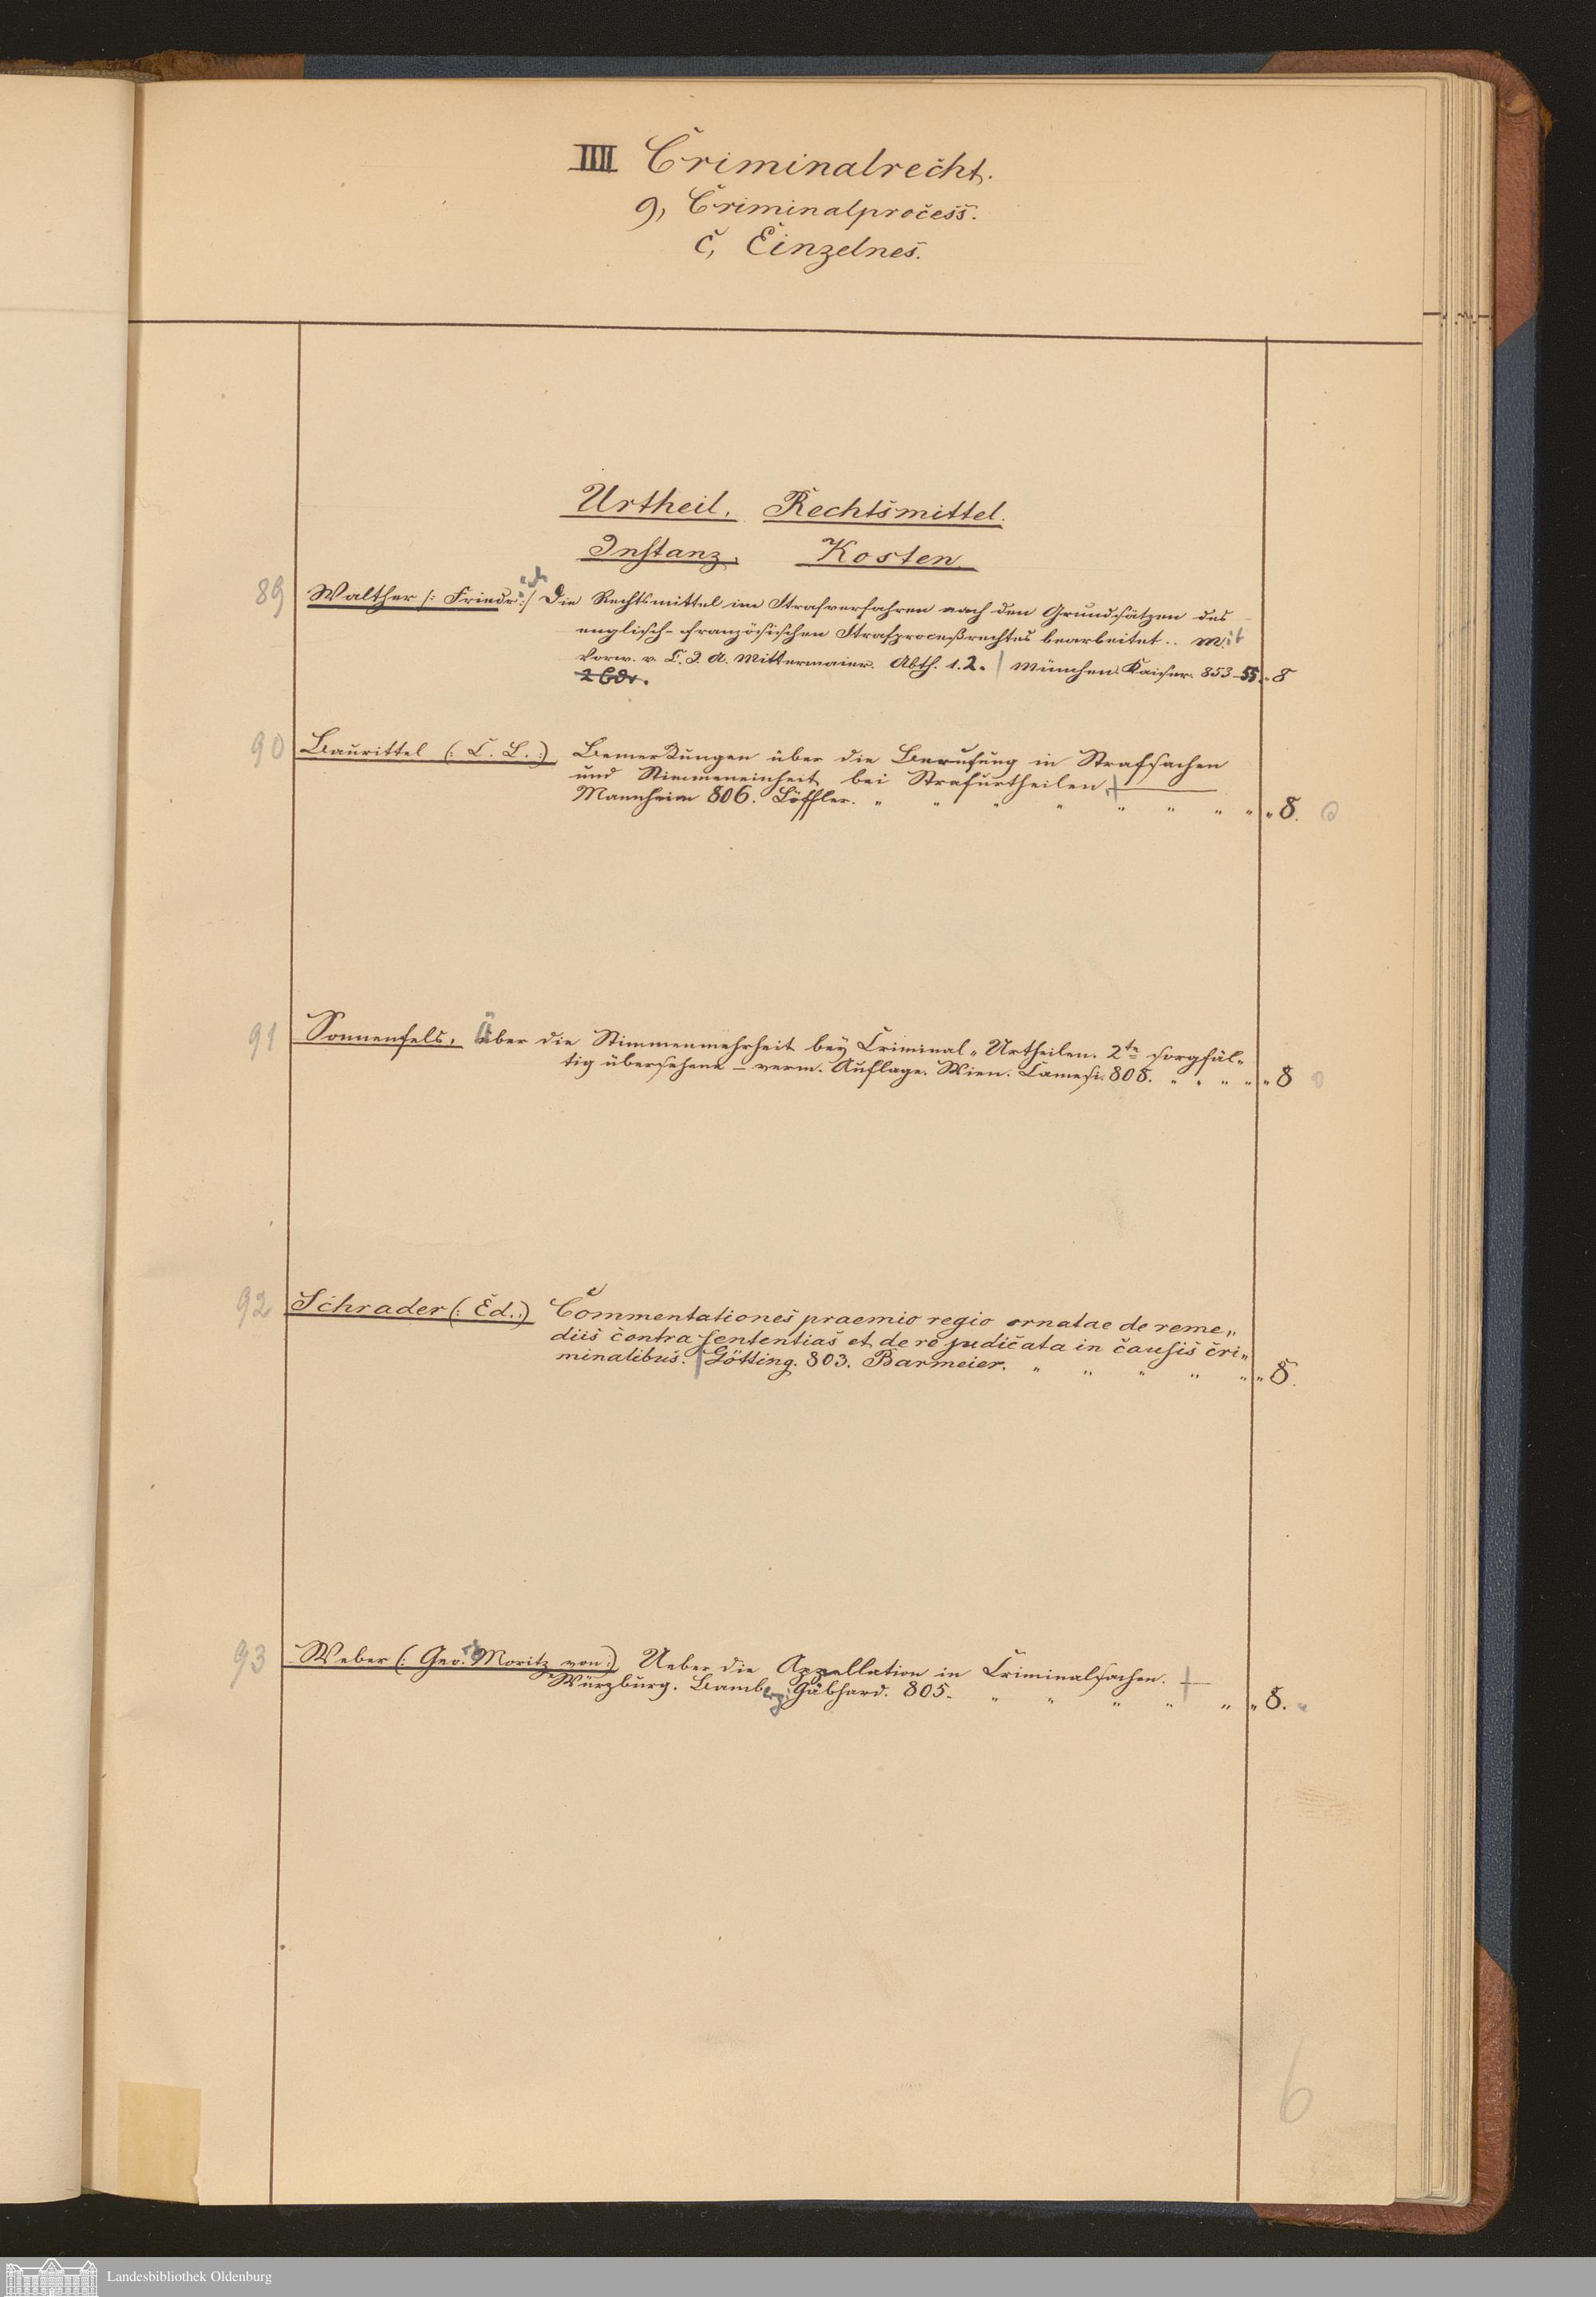 IIII Criminalrecht.
g, Criminalprocess.
c, Einzelnes.
Urtheil. Rechtsmittel.
Instanz. Kosten
89 Walther /: Friedr:/ Die Rechtsmittel im Strafverfahren nach den Grundsätzen des
englisch-französischen Strafproceßrechtes bearbeitet.. Mit
Vorw. v. C. J. A. Mittermaier. Abth. 1.2. | München. Kaiser. 853-55. " 8
2 Bde.
90 Baurittel (: C. L. :) Bemerkungen über die Berufung in Strafsachen
und Stimmeneinheit bei Strafurtheilen.
Mannheim 806. Löffler. " " " " " " " " " 8.
91 Sonnenfels, Über die Stimmenmehrheit bey Criminal-Urtheilen. 2te sorgfäl-
tig übersehene – verm. Auflage. Wien. Camesi. 808. " " " " " 8
92 Schrader (: Ed.:) Commentationes praemio regio ornatae de reme„
diis contra sententias et de re judicata in causis cri„
minalibus. | Götting. 803. Barmeier. " " " " " " 8.
93 Weber (: Geo. Moritz von:) Ueber die Appellation in Criminalsachen.
Würzburg. Bamberg. Gäbhard. 805. " " " " " " 8.
6
Landesbibliothek Oldenburg